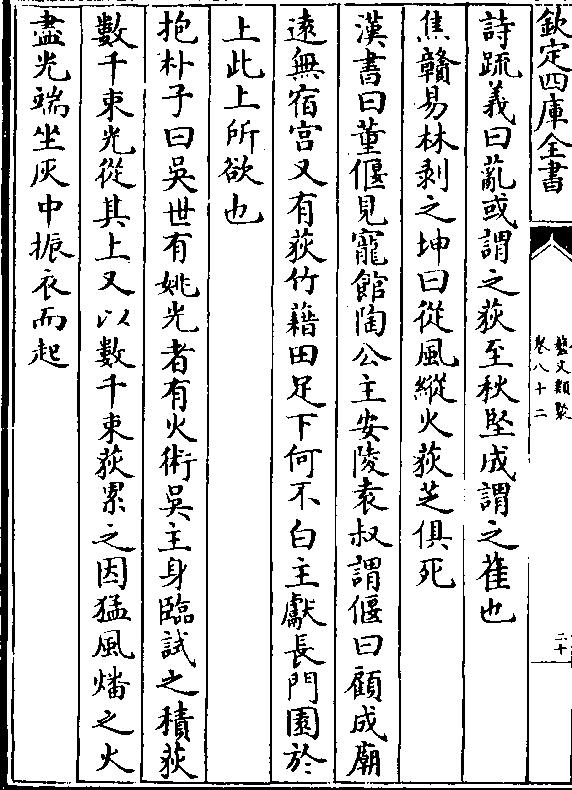 欽定四庫全書
藝文類聚
卷八十二
二十
詩疏義曰薍或謂之荻至秋堅成謂之萑也
焦贛易林剥之坤曰從風縱火荻芝俱死
漢書曰董偃見寵館陶公主安陵袁叔謂偃曰顧成廟
逺無宿宫又有荻竹藉田足下何不白主獻長門園於
上此上所欲也
抱朴子曰吳世有姚光者有火術吳主身臨試之積荻
數千束光從其上又以數千束荻累之因猛風燔之火
盡光端坐灰中振衣而起